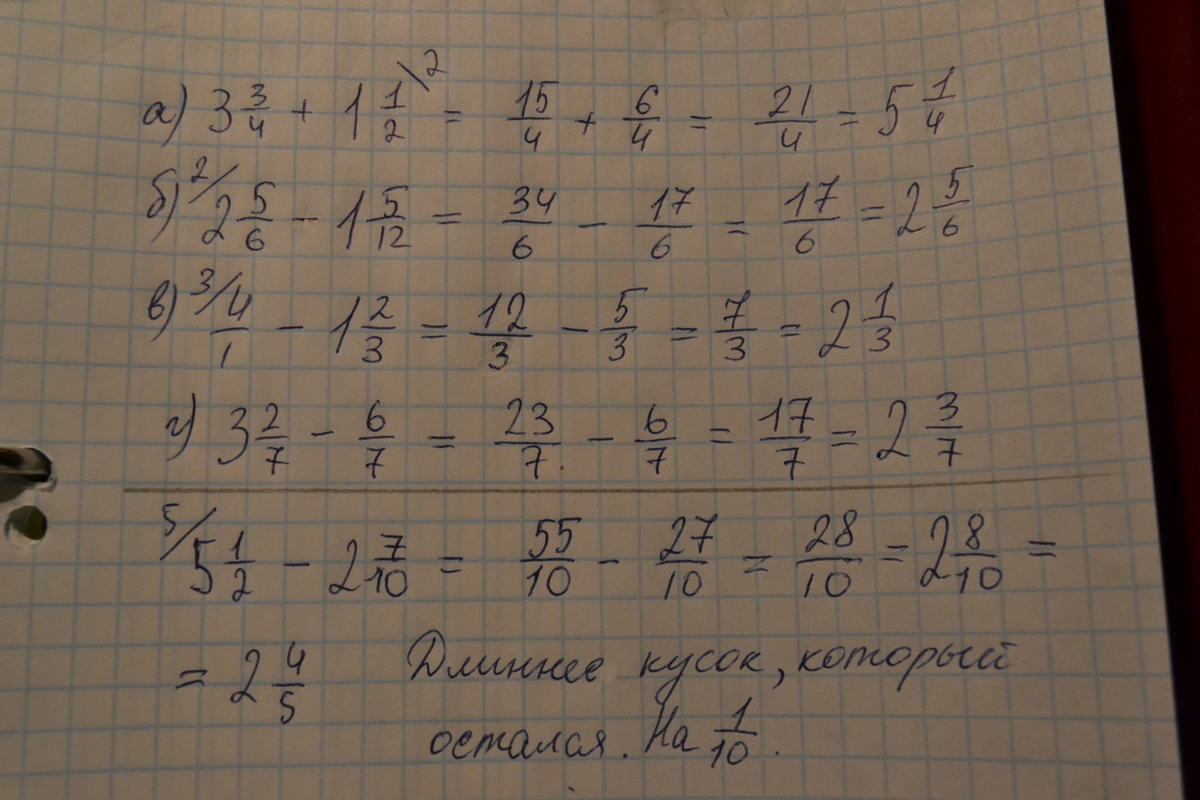 а) 3 3/4 + 1 1/2 \2 = 15/4 + 6/4 = 21/4 = 5 1/4
б) 2/ 2 5/6 - 1 5/12 = 34/6 - 17/6 = 17/6 = 2 5/6
в) 3/ 4/1 - 1 2/3 = 12/3 - 5/3 = 7/3 = 2 1/3
г) 3 2/7 - 6/7 = 23/7 - 6/7 = 17/7 = 2 3/7
5/ 5 1/2 - 2 7/10 = 55/10 - 27/10 = 28/10 = 2 8/10 =
= 2 4/5 Длиннее кусок, который
остался. На 1/10.